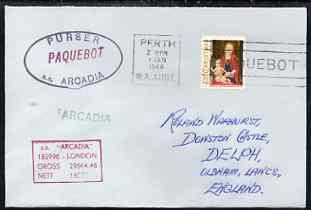 PURSER
PAQUEBOT
s.s. ARCADIA
PERTH
2 30PM
1 JAN
1968
W.A. AUST.
PAQUEBOT
ARCADIA
s.s. "ARCADIA"
185996 - LONDON
GROSS
NETT
ROLAND WARHURST,
DONSTON CASTLE,
DELPH,
OLDHAM, LANCS,
ENGLAND.